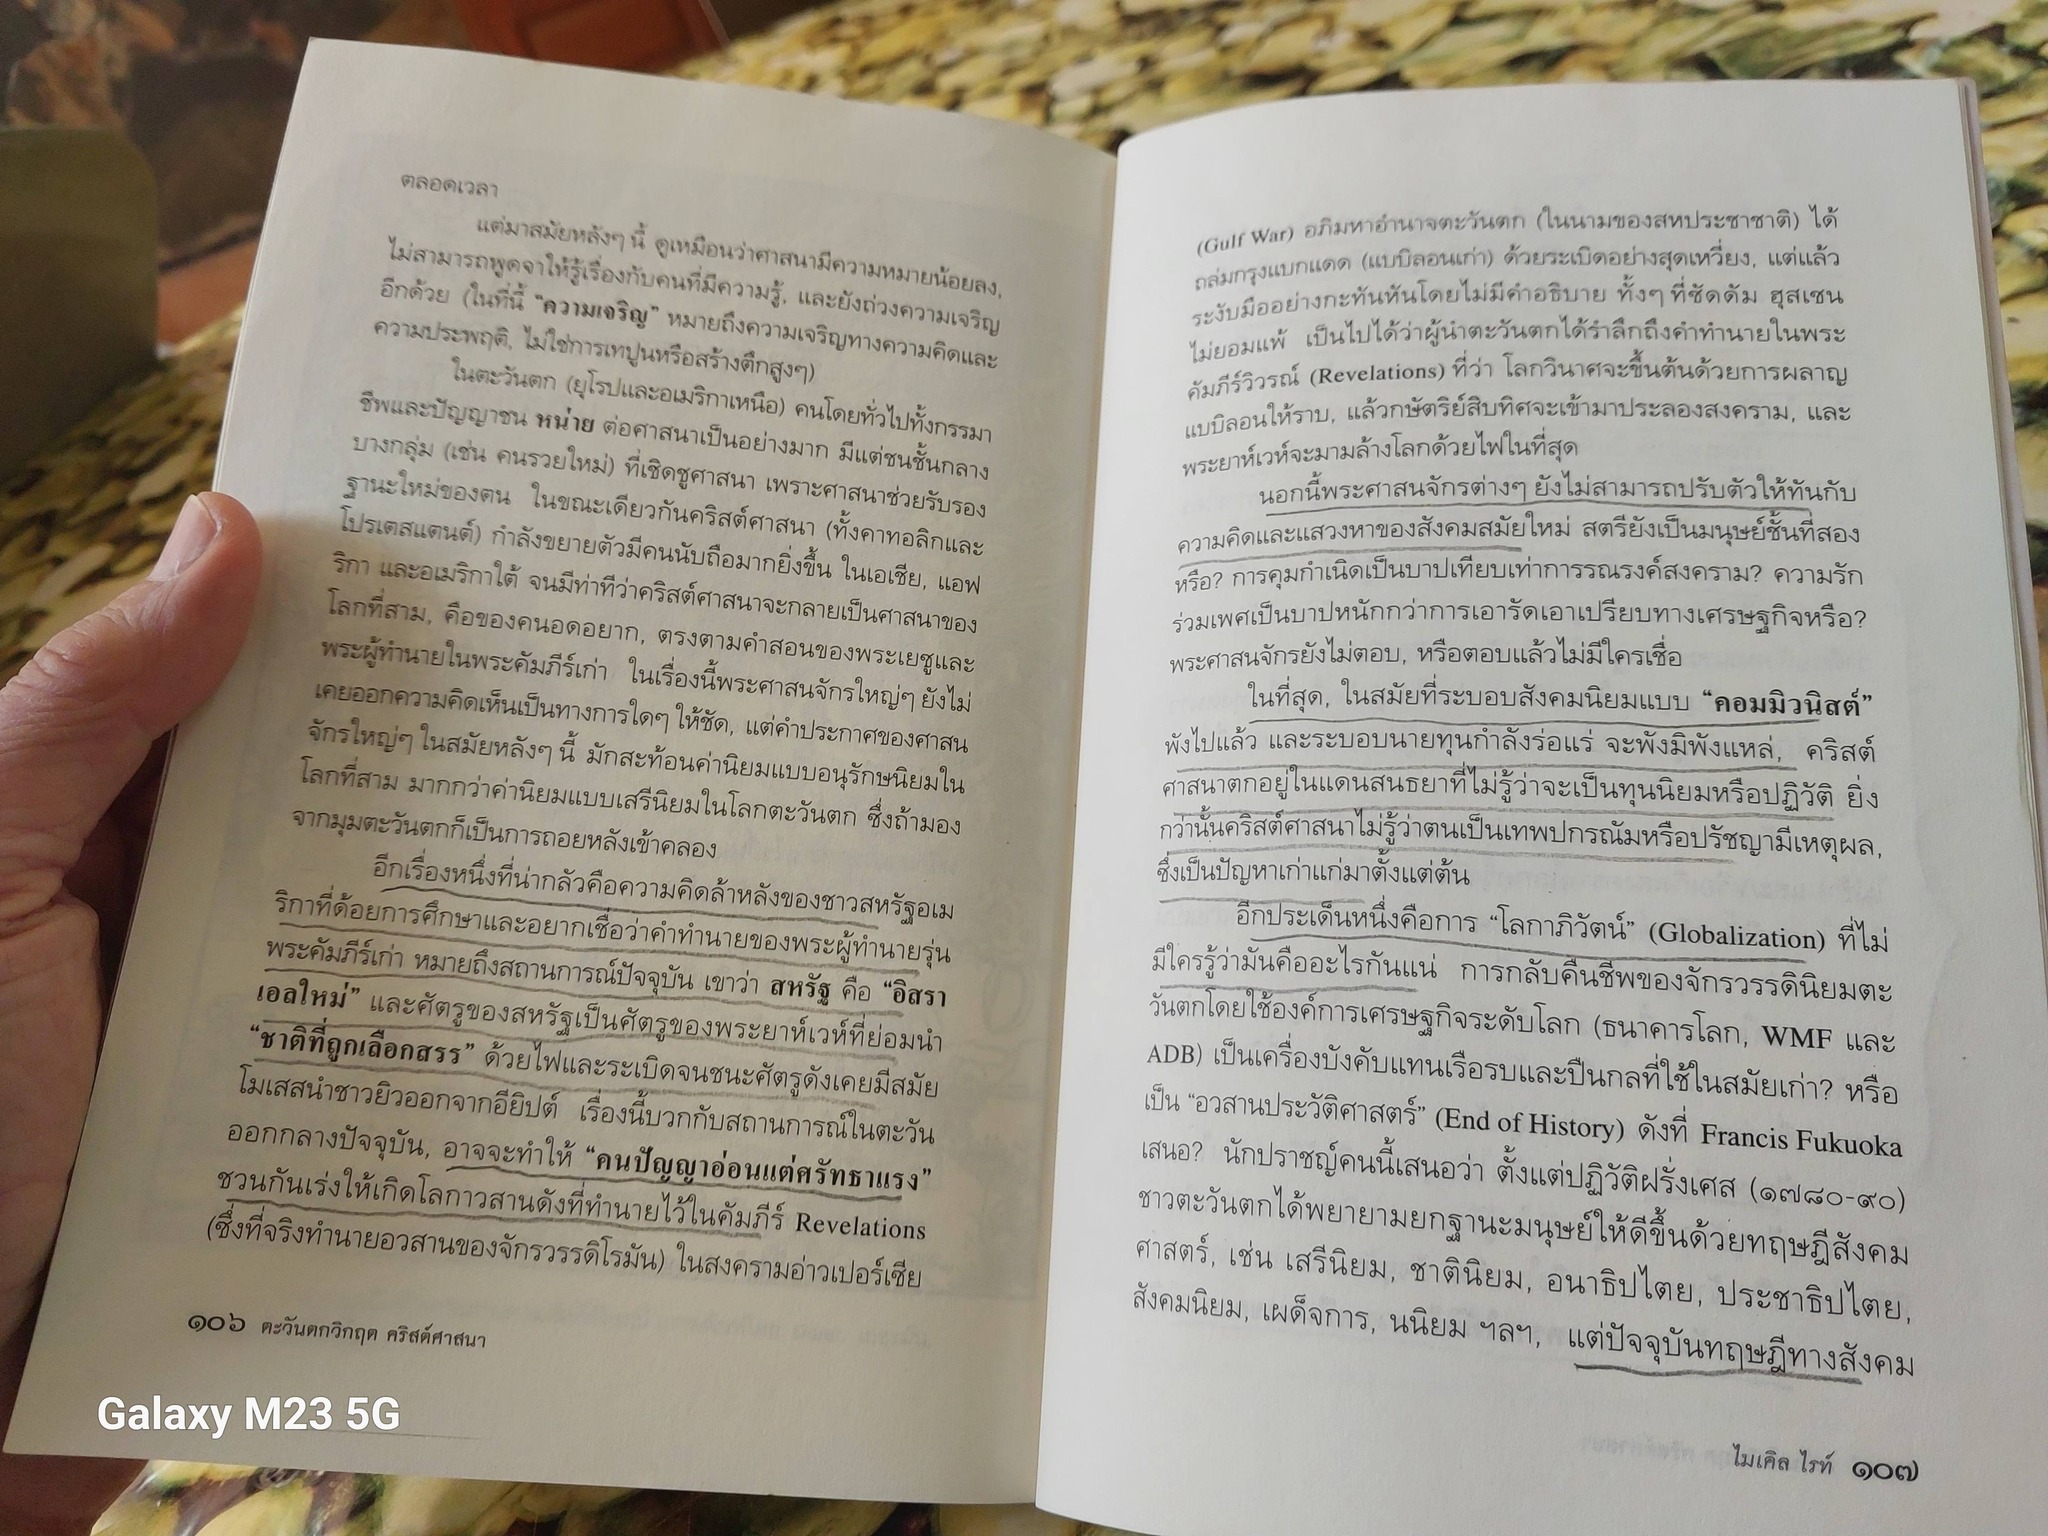 ตลอดเวลา
แต่มาสมัยหลังๆ นี้ ดูเหมือนว่าศาสนามีความหมายน้อยลง,
ไม่สามารถพูดจาให้รู้เรื่องกับคนที่มีความรู้, และยังถ่วงความเจริญ
อีกด้วย (ในที่นี้ “ความเจริญ” หมายถึงความเจริญทางความคิดและ
ความประพฤติ, ไม่ใช่การเทปูนหรือสร้างตึกสูงๆ)
ในตะวันตก (ยุโรปและอเมริกาเหนือ) คนโดยทั่วไปทั้งกรรมา
ชีพและปัญญาชน หน่าย ต่อศาสนาเป็นอย่างมาก มีแต่ชนชั้นกลาง
บางกลุ่ม (เช่น คนรวยใหม่) ที่เชิดชูศาสนา เพราะศาสนาช่วยรับรอง
ฐานะใหม่ของตน ในขณะเดียวกันคริสต์ศาสนา (ทั้งคาทอลิกและ
โปรเตสแตนต์) กำลังขยายตัวมีคนนับถือมากยิ่งขึ้น ในเอเชีย, แอฟ
ริกา และอเมริกาใต้ จนมีท่าทีว่าคริสต์ศาสนาจะกลายเป็นศาสนาของ
โลกที่สาม, คือของคนอดอยาก, ตรงตามคำสอนของพระเยซูและ
พระผู้ทำนายในพระคัมภีร์เก่า ในเรื่องนี้พระศาสนจักรใหญ่ๆ ยังไม่
เคยออกความคิดเห็นเป็นทางการใดๆ ให้ชัด, แต่คำประกาศของศาสน
จักรใหญ่ๆ ในสมัยหลังๆ นี้ มักสะท้อนค่านิยมแบบอนุรักษนิยมใน
โลกที่สาม มากกว่าค่านิยมแบบเสรีนิยมในโลกตะวันตก ซึ่งถ้ามอง
จากมุมตะวันตกก็เป็นการถอยหลังเข้าคลอง
อีกเรื่องหนึ่งที่น่ากลัวคือความคิดล้าหลังของชาวสหรัฐอเม
ริกาที่ด้อยการศึกษาและอยากเชื่อว่าคำทำนายของพระผู้ทำนายรุ่น
พระคัมภีร์เก่า หมายถึงสถานการณ์ปัจจุบัน เขาว่า สหรัฐ คือ “อิสรา
เอลใหม่” และศัตรูของสหรัฐเป็นศัตรูของพระยาห์เวห์ที่ย่อมนำ
“ชาติที่ถูกเลือกสรร” ด้วยไฟและระเบิดจนชนะศัตรูดังเคยมีสมัย
โมเสสนำชาวยิวออกจากอียิปต์ เรื่องนี้บวกกับสถานการณ์ในตะวัน
ออกกลางปัจจุบัน, อาจจะทำให้ “คนปัญญาอ่อนแต่ศรัทธาแรง”
ชวนกันเร่งให้เกิดโลกาวสานดังที่ทำนายไว้ในคัมภีร์ Revelations
(ซึ่งที่จริงทำนายอวสานของจักรวรรดิโรมัน) ในสงครามอ่าวเปอร์เซีย
๑๐๖ ตะวันตกวิกฤต คริสต์ศาสนา
(Gulf War) อภิมหาอำนาจตะวันตก (ในนามของสหประชาชาติ) ได้
ถล่มกรุงแบกแดด (แบบิลอนเก่า) ด้วยระเบิดอย่างสุดเหวี่ยง, แต่แล้ว
ระงับมืออย่างกะทันหันโดยไม่มีคำอธิบาย ทั้งๆ ที่ซัดดัม ฮุสเซน
ไม่ยอมแพ้ เป็นไปได้ว่าผู้นำตะวันตกได้รำลึกถึงคำทำนายในพระ
คัมภีร์วิวรณ์ (Revelations) ที่ว่า โลกวินาศจะขึ้นต้นด้วยการผลาญ
แบบิลอนให้ราบ, แล้วกษัตริย์สิบทิศจะเข้ามาประลองสงคราม, และ
พระยาห์เวห์จะมามล้างโลกด้วยไฟในที่สุด
นอกนี้พระศาสนจักรต่างๆ ยังไม่สามารถปรับตัวให้ทันกับ
ความคิดและแสวงหาของสังคมสมัยใหม่ สตรียังเป็นมนุษย์ชั้นที่สอง
หรือ? การคุมกำเนิดเป็นบาปเทียบเท่าการรณรงค์สงคราม? ความรัก
ร่วมเพศเป็นบาปหนักกว่าการเอารัดเอาเปรียบทางเศรษฐกิจหรือ?
พระศาสนจักรยังไม่ตอบ, หรือตอบแล้วไม่มีใครเชื่อ
ในที่สุด, ในสมัยที่ระบอบสังคมนิยมแบบ “คอมมิวนิสต์”
พังไปแล้ว และระบอบนายทุนกำลังร่อแร่ จะพังมิพังแหล่, คริสต์
ศาสนาตกอยู่ในแดนสนธยาที่ไม่รู้ว่าจะเป็นทุนนิยมหรือปฏิวัติ ยิ่ง
กว่านั้นคริสต์ศาสนาไม่รู้ว่าตนเป็นเทพปกรณัมหรือปรัชญามีเหตุผล,
ซึ่งเป็นปัญหาเก่าแก่มาตั้งแต่ต้น
อีกประเด็นหนึ่งคือการ “โลกาภิวัตน์” (Globalization) ที่ไม่
มีใครรู้ว่ามันคืออะไรกันแน่ การกลับคืนชีพของจักรวรรดินิยมตะ
วันตกโดยใช้องค์การเศรษฐกิจระดับโลก (ธนาคารโลก, WMF และ
ADB) เป็นเครื่องบังคับแทนเรือรบและปืนกลที่ใช้ในสมัยเก่า? หรือ
เป็น “อวสานประวัติศาสตร์” (End of History) ดังที่ Francis Fukuoka
เสนอ? นักปราชญ์คนนี้เสนอว่า ตั้งแต่ปฏิวัติฝรั่งเศส (๑๗๘๐-๙๐)
ชาวตะวันตกได้พยายามยกฐานะมนุษย์ให้ดีขึ้นด้วยทฤษฎีสังคม
ศาสตร์, เช่น เสรีนิยม, ชาตินิยม, อนาธิปไตย, ประชาธิปไตย,
สังคมนิยม, เผด็จการ, นนิยม ฯลฯ, แต่ปัจจุบันทฤษฎีทางสังคม
ไมเคิล ไรท์ ๑๐๗
Galaxy M23 5G